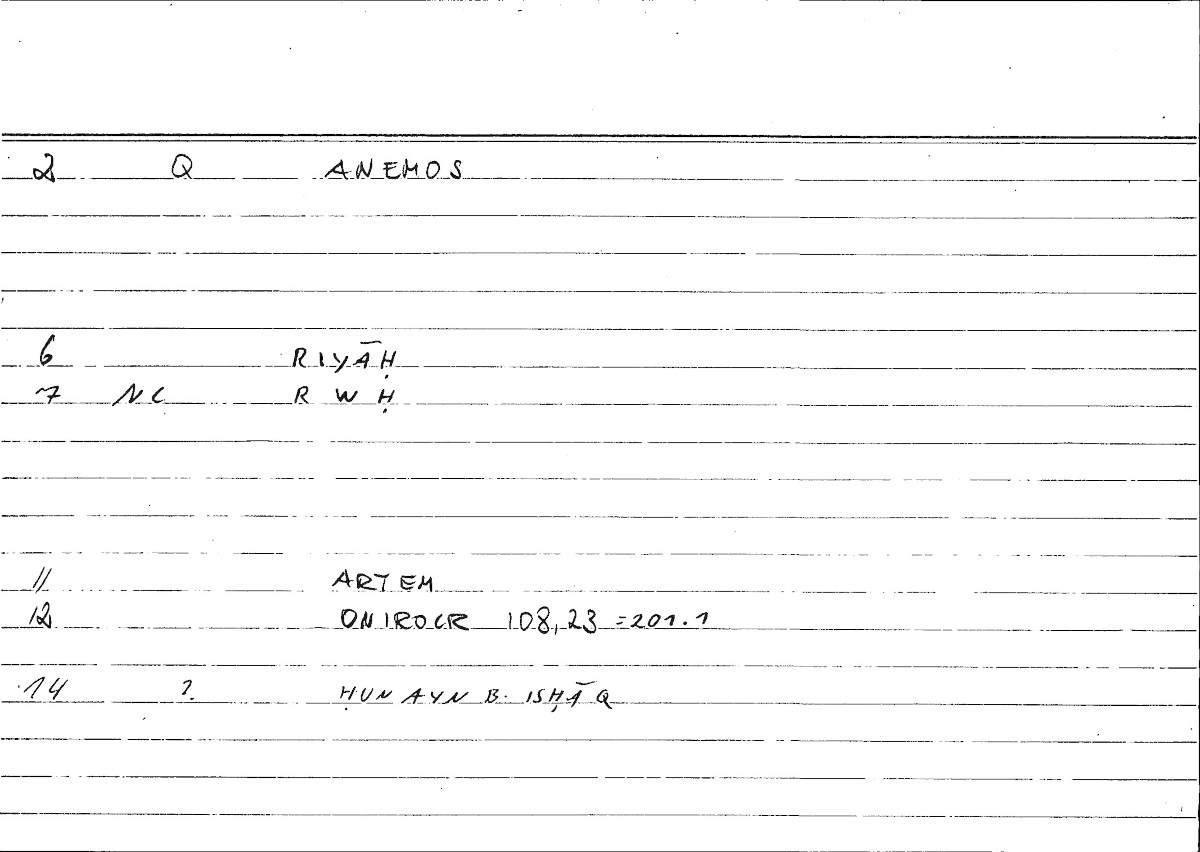 2 Q ANEMOS
6 RIYĀḤ
7 NC R W Ḥ
11 ARTEM
12 ONIROCR 108,23 =201.1
14 ? ḤUNAYN B. ISḤĀQ